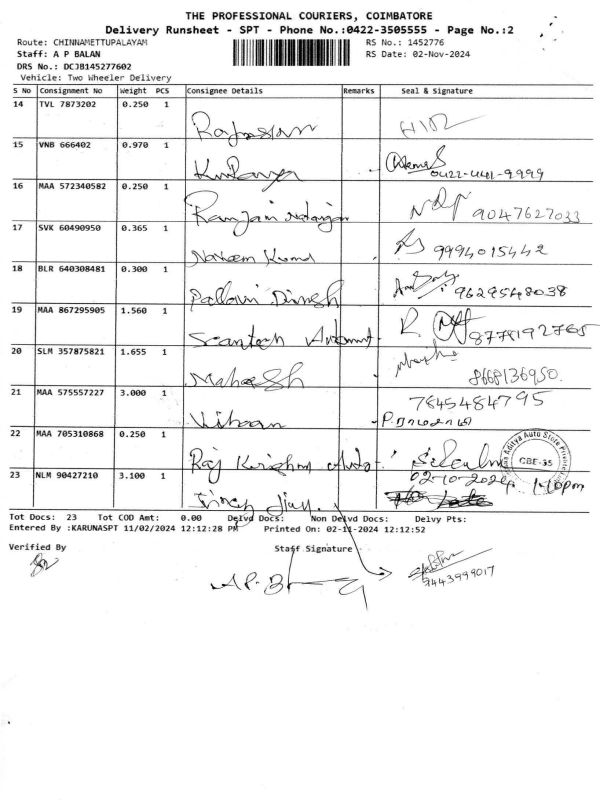 THE PROFESSIONAL COURIERS, COIMBATORE
Delivery Runsheet - SPT - Phone No.:0422-3505555 - Page No.:2
Route: CHINNAMETTUPALAYAM RS No.: 1452776
Staff: A P BALAN RS Date: 02-Nov-2024
DRS No.: DCJB145277602
Vehicle: Two Wheeler Delivery
S No Consignment No Weight PCS Consignee Details Remarks Seal & Signature
14 TVL 7873202 0.250 1
15 VNB 666402 0.970 1
0422-4401-9999
16 MAA 572340582 0.250 1
9047627033
17 SVK 60490950 0.365 1
Naveen Kumar 9994015442
18 BLR 640308481 0.300 1
Pallavi Dinesh 9629548038
19 MAA 867295905 1.560 1
Scantech R. 8778192765
20 SLM 357875821 1.655 1
Mahesh 8668136950.
21 MAA 575557227 3.000 1 7845484795
Vihaan
22 MAA 705310868 0.250 1
Raj Krishna Auto Aditya Auto Store CBE-35
23 NLM 90427210 3.100 1 02-10-2024 1-10pm
Tot Docs: 23 Tot COD Amt: 0.00 Delvd Docs: Non Delvd Docs: Delvy Pts:
Entered By :KARUNASPT 11/02/2024 12:12:28 PM Printed On: 02-11-2024 12:12:52
Verified By Staff Signature
A.P.B
9443999017